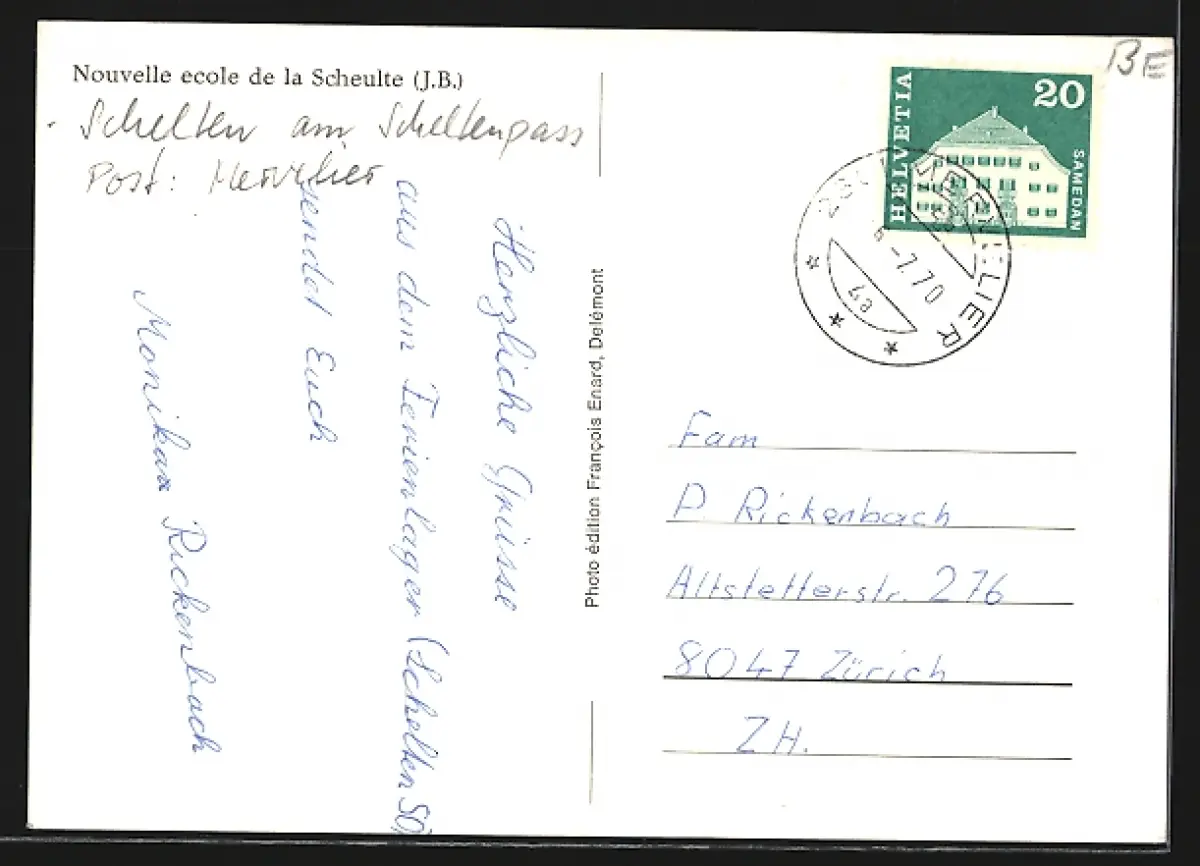 Nouvelle ecole de la Scheulte (J.B.)
Schelten am Scheltenpass
Post: Mervelier
BE
HELVETIA
20
SAMEDAN
MERVELIER
-7.70
Herzliche Grüsse
aus dem Ferienlager (Schelten SO)
sendet Euch
Monika Rickenbach
Photo édition François Enard, Delémont
Fam
P. Rickenbach
Altstetterstr. 276
8047 Zürich
ZH.